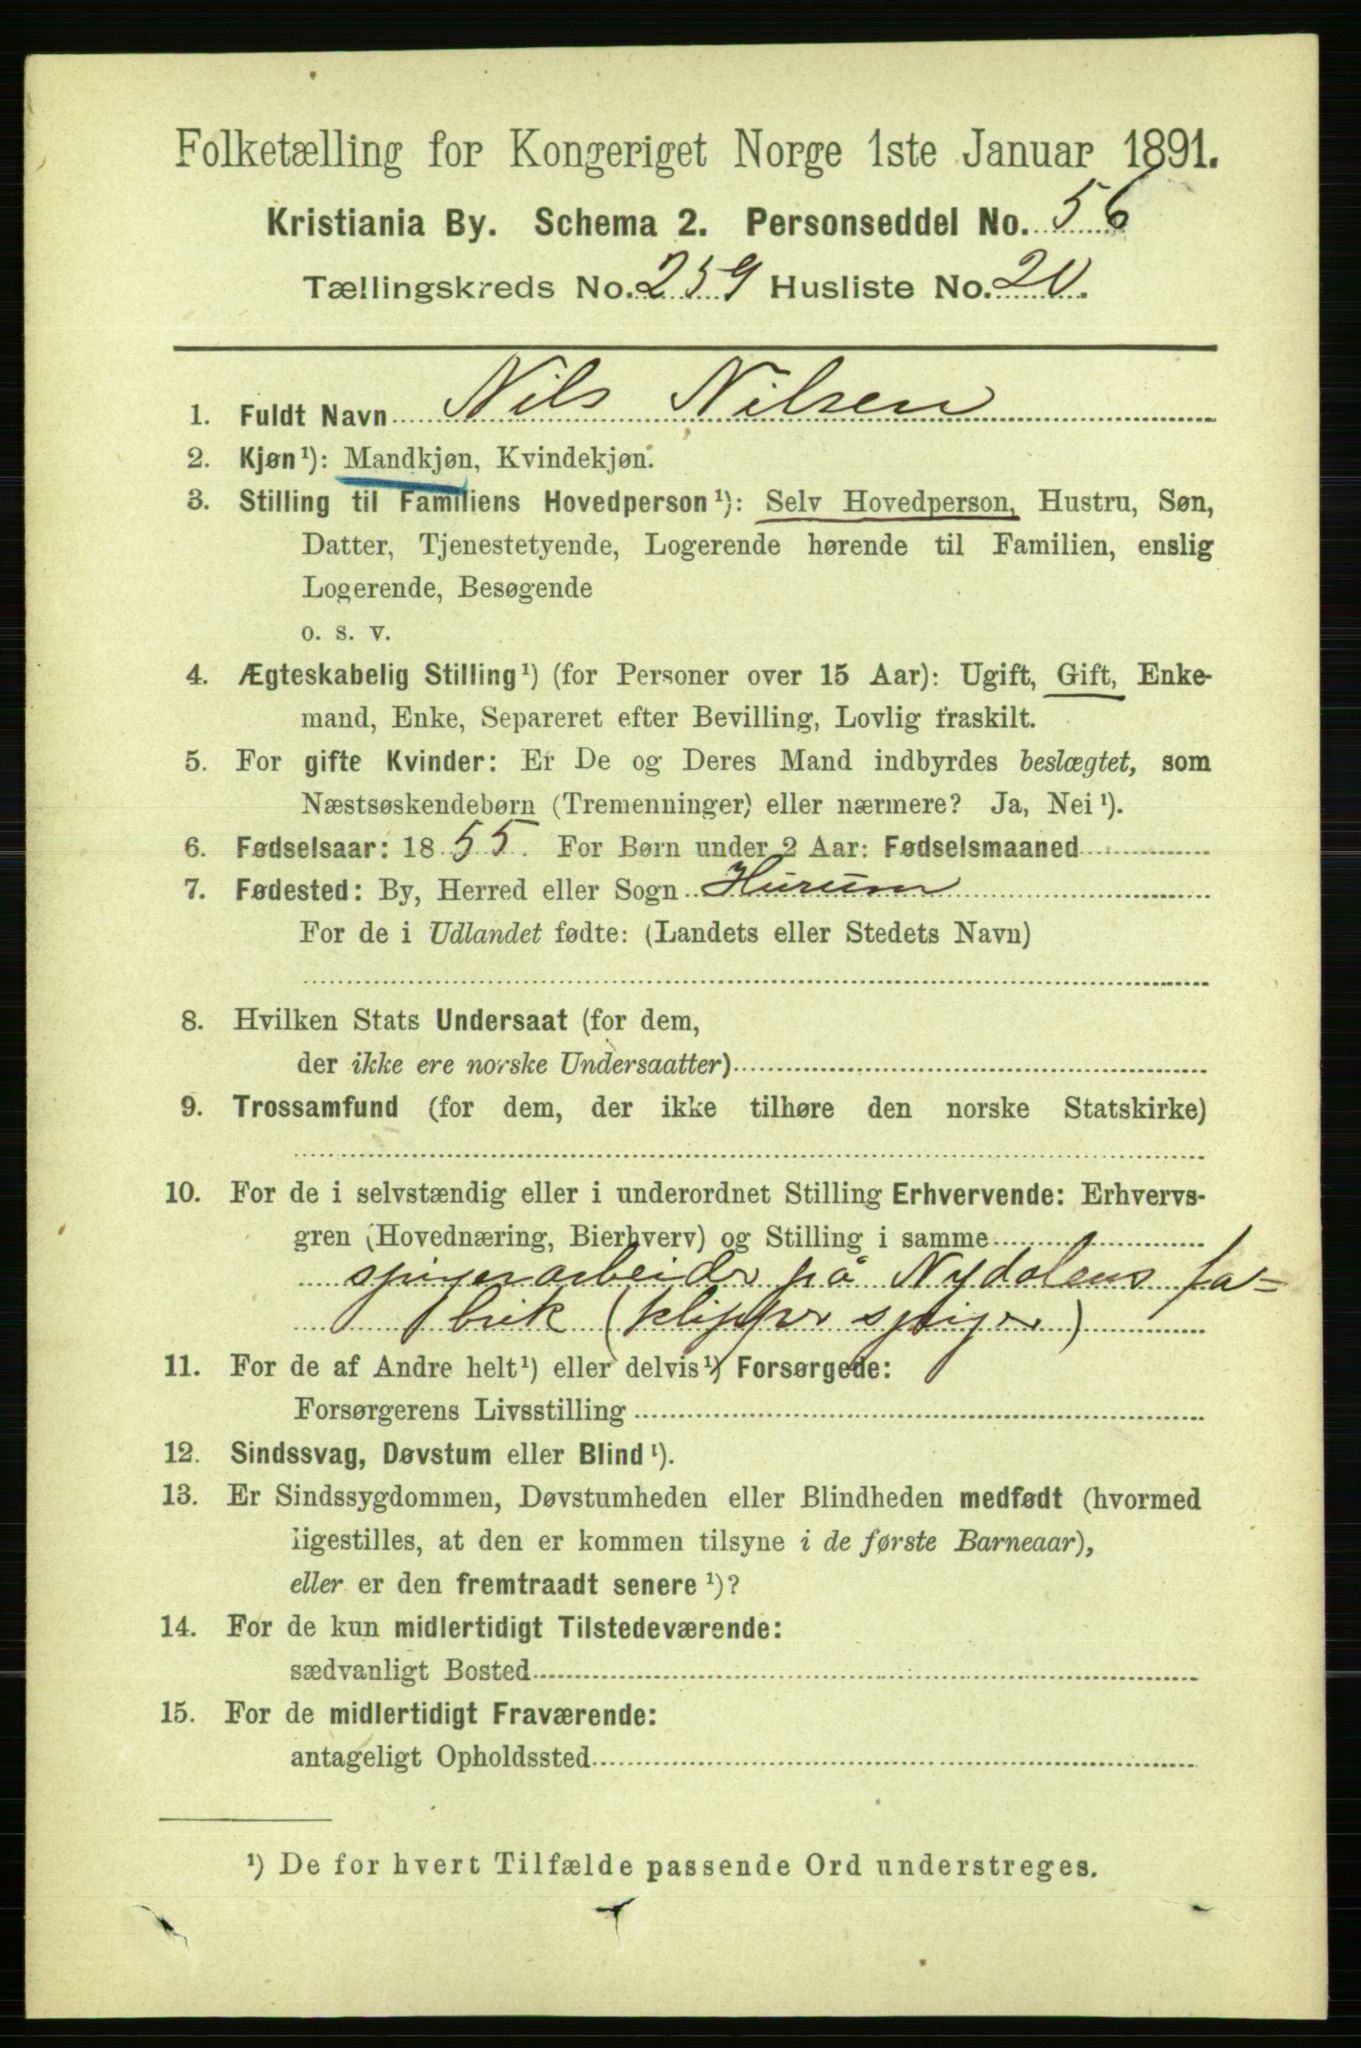 Folketælling for Kongeriget Norge 1ste Januar 1891.
Kristiania By. Schema 2. Personseddel No. 56
Tællingskreds No. 259 Husliste No. 20.
1. Fuldt Navn Nils Nilsen
2. Kjøn¹): Mandkjøn, Kvindekjøn.
3. Stilling til Familiens Hovedperson¹): Selv Hovedperson, Hustru, Søn,
Datter, Tjenestetyende, Logerende hørende til Familien, enslig
Logerende, Besøgende
o. s. v.
4. Ægteskabelig Stilling¹) (for Personer over 15 Aar): Ugift, Gift, Enke-
mand, Enke, Separeret efter Bevilling, Lovlig fraskilt.
5. For gifte Kvinder: Er De og Deres Mand indbyrdes beslægtet, som
Næstsøskendebørn (Tremenninger) eller nærmere? Ja, Nei¹).
6. Fødselsaar: 1855. For Børn under 2 Aar: Fødselsmaaned
7. Fødested: By, Herred eller Sogn Hurum
For de i Udlandet fødte: (Landets eller Stedets Navn)
8. Hvilken Stats Undersaat (for dem,
der ikke ere norske Undersaatter)
9. Trossamfund (for dem, der ikke tilhøre den norske Statskirke)
10. For de i selvstændig eller i underordnet Stilling Erhvervende: Erhvervs-
gren (Hovednæring, Bierhverv) og Stilling i samme
spigerarbeider på Nydalens fa=
brik (klipper spiger)
11. For de af Andre helt¹) eller delvis¹) Forsørgede:
Forsørgerens Livsstilling
12. Sindssvag, Døvstum eller Blind¹).
13. Er Sindssygdommen, Døvstumheden eller Blindheden medfødt (hvormed
ligestilles, at den er kommen tilsyne i de første Barneaar),
eller er den fremtraadt senere¹)?
14. For de kun midlertidigt Tilstedeværende:
sædvanligt Bosted
15. For de midlertidigt Fraværende:
antageligt Opholdssted
¹) De for hvert Tilfælde passende Ord understreges.